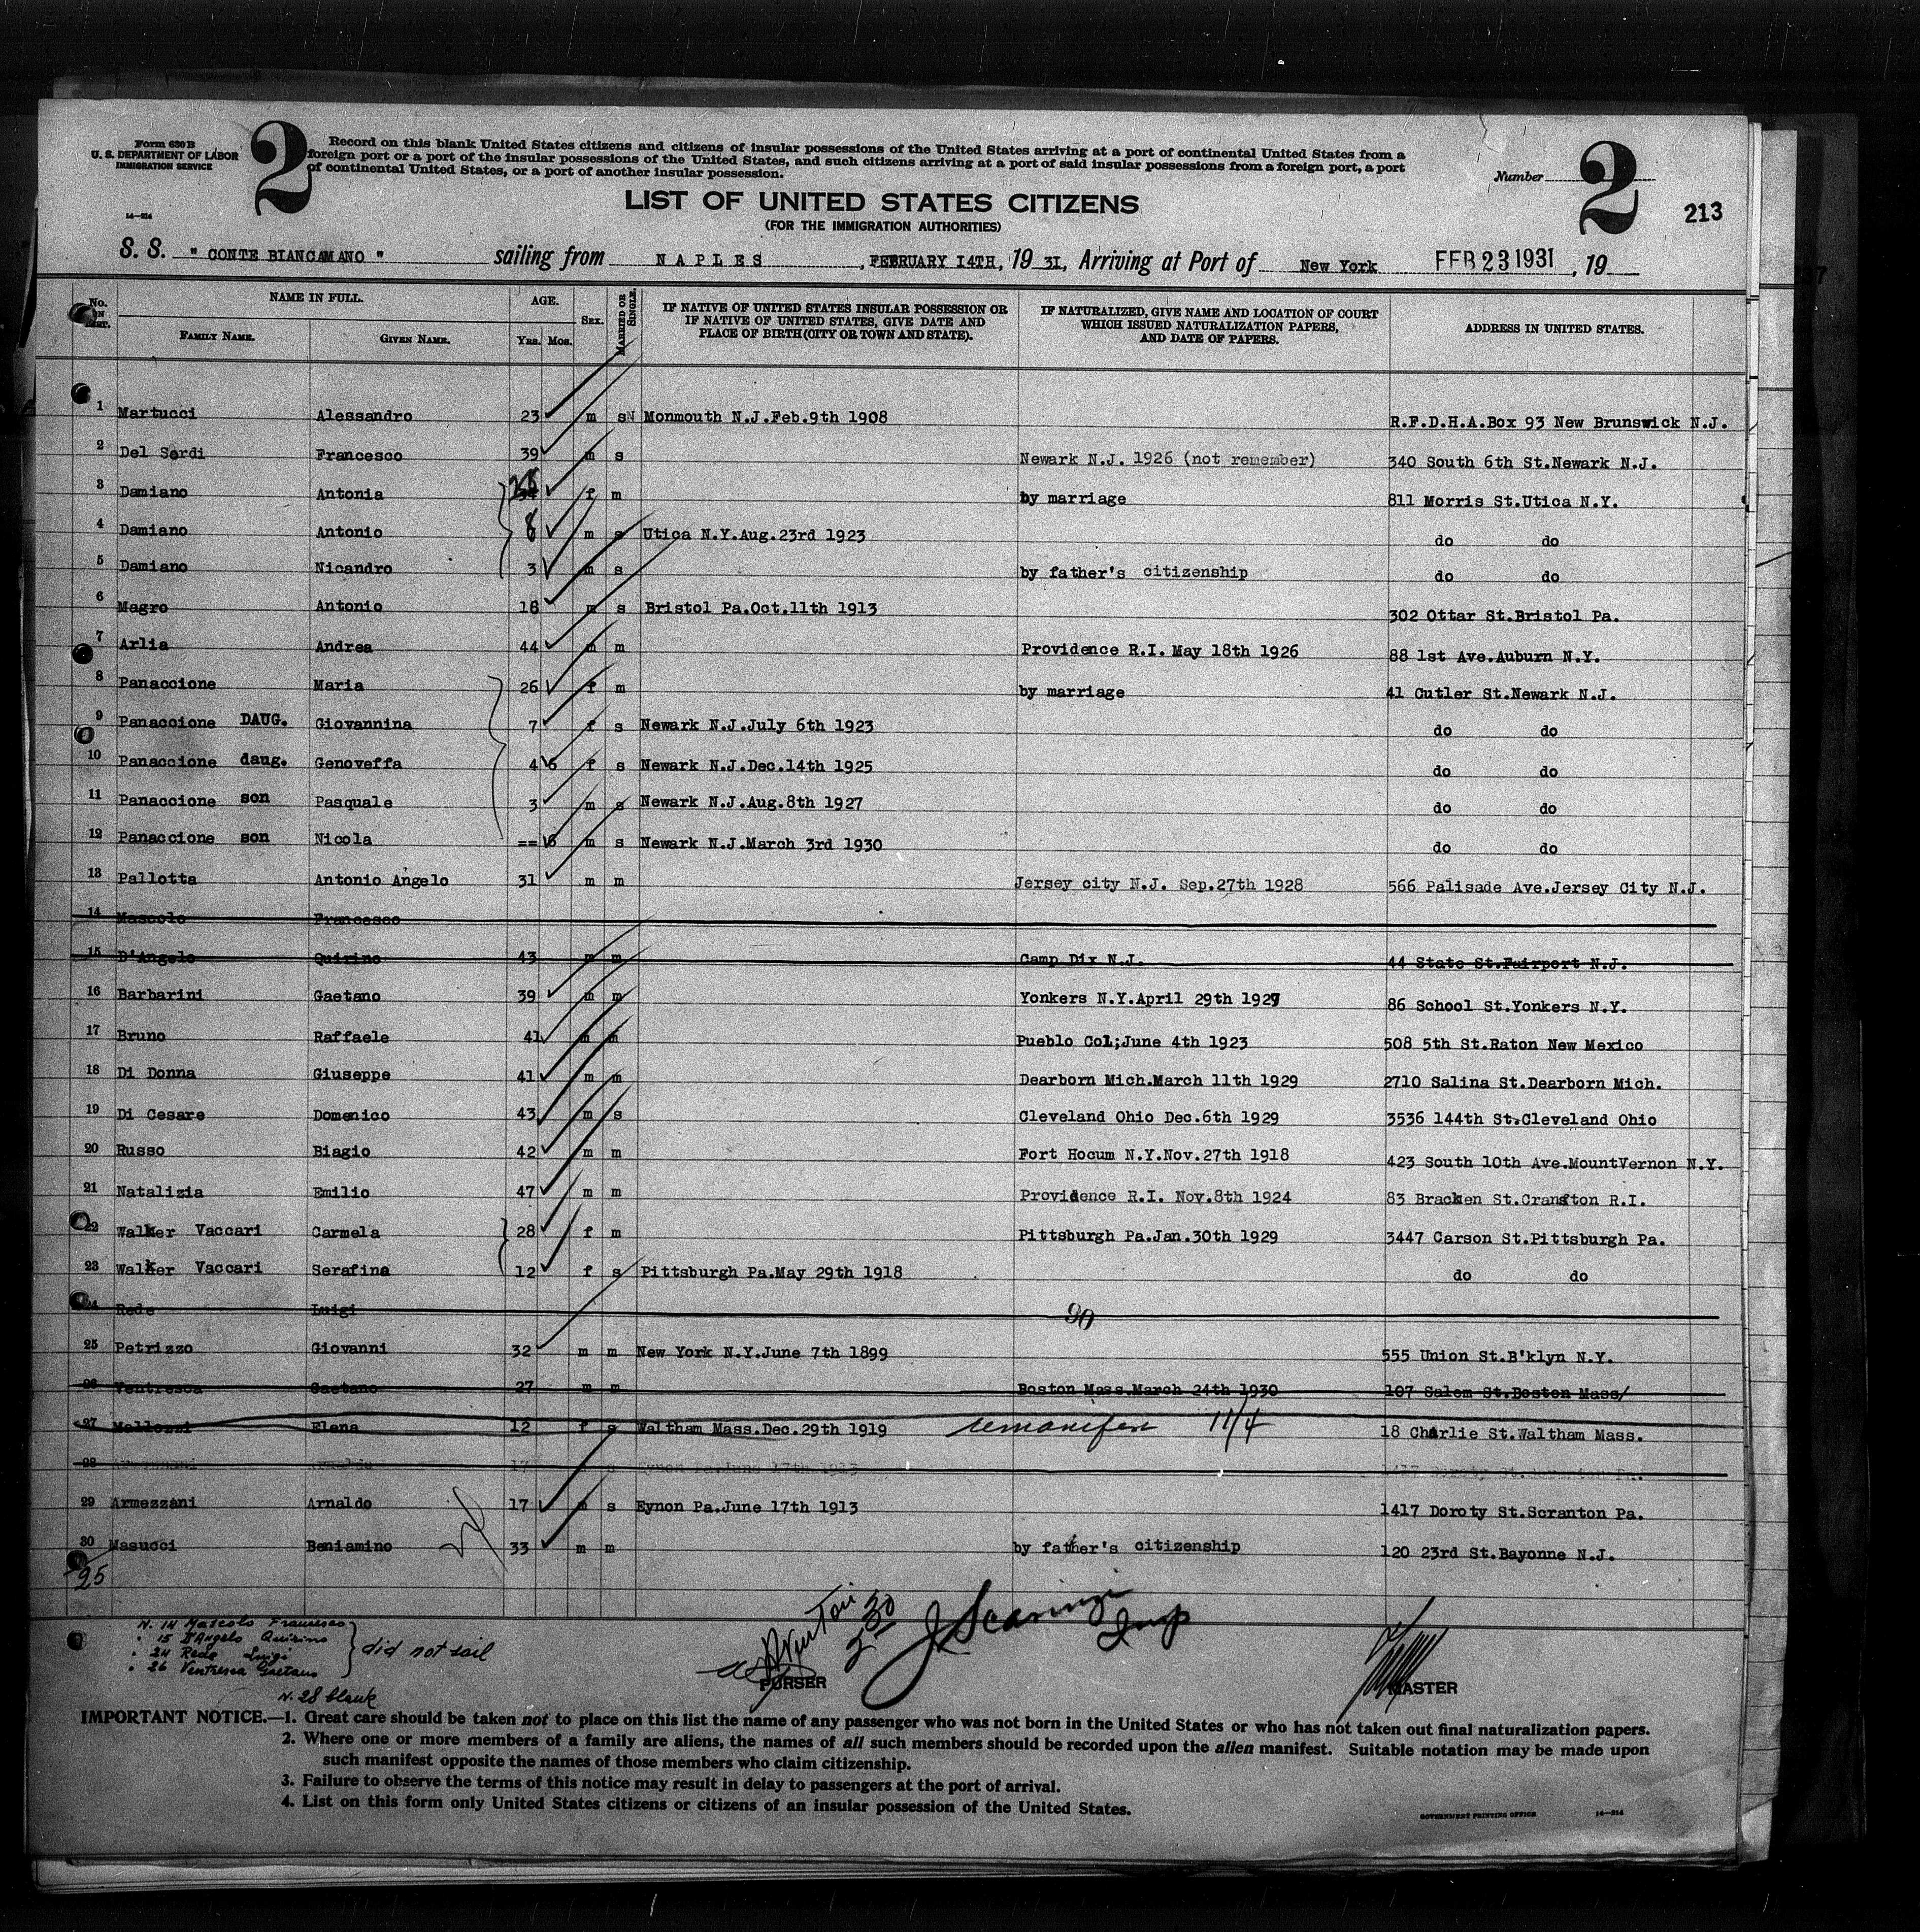 Form 630 B
U. S. DEPARTMENT OF LABOR
IMMIGRATION SERVICE
14—214
2
Record on this blank United States citizens and citizens of insular possessions of the United States arriving at a port of continental United States from a
foreign port or a port of the insular possessions of the United States, and such citizens arriving at a port of said insular possessions from a foreign port, a port
of continental United States, or a port of another insular possession.
Number 2
213
LIST OF UNITED STATES CITIZENS
(FOR THE IMMIGRATION AUTHORITIES)
S. S. " CONTE BIANCAMANO " sailing from NAPLES, FEBRUARY 14TH, 19 31, Arriving at Port of New York FEB 23 1931, 19
No. ON LIST. NAME IN FULL. FAMILY NAME. GIVEN NAME. AGE. Yrs. Mos. SEX. MARRIED OR SINGLE. IF NATIVE OF UNITED STATES INSULAR POSSESSION OR IF NATIVE OF UNITED STATES, GIVE DATE AND PLACE OF BIRTH (CITY OR TOWN AND STATE). IF NATURALIZED, GIVE NAME AND LOCATION OF COURT WHICH ISSUED NATURALIZATION PAPERS, AND DATE OF PAPERS. ADDRESS IN UNITED STATES.
1 Martucci Alessandro 23 m s Monmouth N.J.Feb.9th 1908 R.F.D.H.A.Box 93 New Brunswick N.J.
2 Del Sordi Francesco 39 m s Newark N.J. 1926 (not remember) 340 South 6th St.Newark N.J.
3 Damiano Antonia f m by marriage 811 Morris St.Utica N.Y.
4 Damiano Antonio 8 m s Utica N.Y.Aug.23rd 1923 do do
5 Damiano Nicandro 3 m s by father's citizenship do do
6 Magro Antonio 18 m s Bristol Pa.Oct.11th 1913 302 Ottar St.Bristol Pa.
7 Arlia Andrea 44 m m Providence R.I. May 18th 1926 88 1st Ave.Auburn N.Y.
8 Panaccione Maria 26 f m by marriage 41 Cutler St.Newark N.J.
9 Panaccione DAUG. Giovannina 7 f s Newark N.J.July 6th 1923 do do
10 Panaccione daug. Genoveffa 4 6 f s Newark N.J.Dec.14th 1925 do do
11 Panaccione son Pasquale 3 m s Newark N.J.Aug.8th 1927 do do
12 Panaccione son Nicola == 6 m s Newark N.J.March 3rd 1930 do do
13 Pallotta Antonio Angelo 31 m m Jersey city N.J. Sep.27th 1928 566 Palisade Ave.Jersey City N.J.
14 Mascolo Francesco
15 D'Angelo Quirino 43 m m Camp Dix N.J. 44 State St.Fairport N.J.
16 Barbarini Gaetano 39 m m Yonkers N.Y.April 29th 1927 86 School St.Yonkers N.Y.
17 Bruno Raffaele 41 m m Pueblo Col;June 4th 1923 508 5th St.Raton New Mexico
18 Di Donna Giuseppe 41 m m Dearborn Mich.March 11th 1929 2710 Salina St.Dearborn Mich.
19 Di Cesare Domenico 43 m s Cleveland Ohio Dec.6th 1929 3536 144th St.Cleveland Ohio
20 Russo Biagio 42 m m Fort Hocum N.Y.Nov.27th 1918 423 South 10th Ave.MountVernon N.Y.
21 Natalizia Emilio 47 m m Providence R.I. Nov.8th 1924 83 Bracken St.Cranston R.I.
22 Walker Vaccari Carmela 28 f m Pittsburgh Pa.Jan.30th 1929 3447 Carson St.Pittsburgh Pa.
23 Walker Vaccari Serafina 12 f s Pittsburgh Pa.May 29th 1918 do do
24 Rede Luigi 90
25 Petrizzo Giovanni 32 m m New York N.Y.June 7th 1899 555 Union St.B'klyn N.Y.
26 Ventresca Gaetano 27 m m Boston Mass.March 24th 1930 107 Salem St.Boston Mass/
27 Elena 12 f s Waltham Mass.Dec.29th 1919 remanifest 11/4 18 Charlie St.Waltham Mass.
28 17 s Eynon Pa.June 17th 1913 1417 Doroty St.Scranton Pa.
29 Armezzani Arnaldo 17 m s Eynon Pa.June 17th 1913 1417 Doroty St.Scranton Pa.
30 Masucci Beniamino 33 m m by father's citizenship 120 23rd St.Bayonne N.J.
25
N. 14 Mascolo Francesco
" 15 D'Angelo Quirino
" 24 Rede Luigi
" 26 Ventresca Gaetano
did not sail
N. 28 blank
PURSER
MASTER
IMPORTANT NOTICE.—1. Great care should be taken not to place on this list the name of any passenger who was not born in the United States or who has not taken out final naturalization papers.
2. Where one or more members of a family are aliens, the names of all such members should be recorded upon the alien manifest. Suitable notation may be made upon
such manifest opposite the names of those members who claim citizenship.
3. Failure to observe the terms of this notice may result in delay to passengers at the port of arrival.
4. List on this form only United States citizens or citizens of an insular possession of the United States.
GOVERNMENT PRINTING OFFICE 14—214